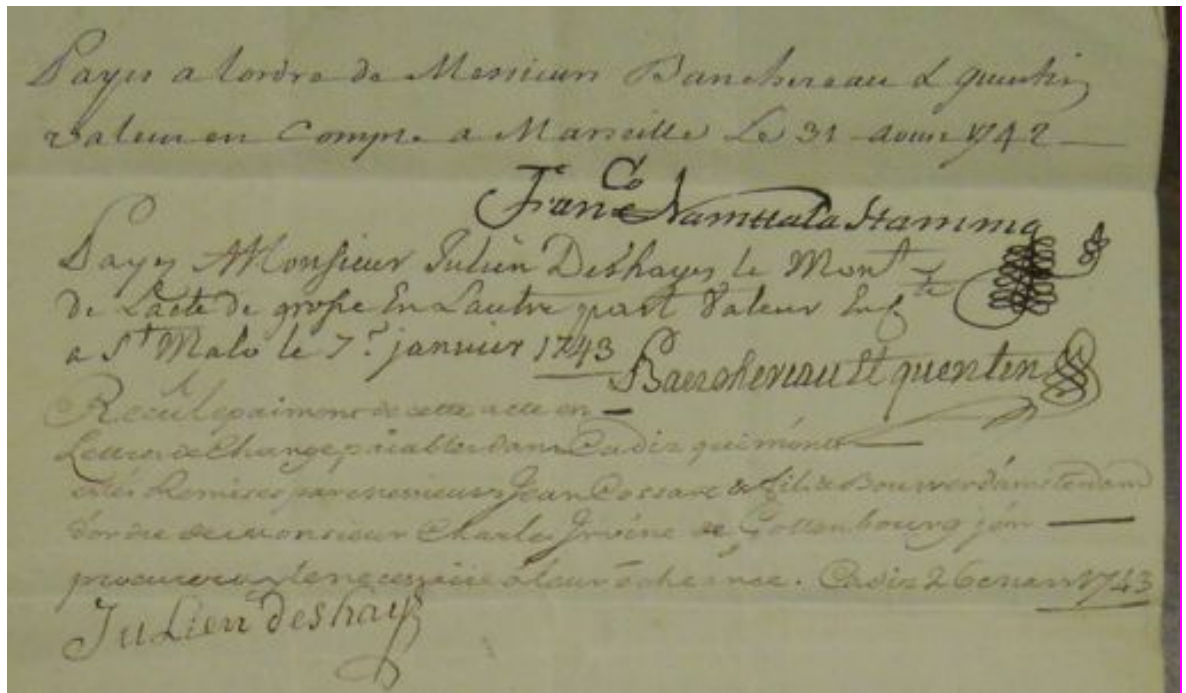 Payes a lordre de Messieurs Banchereau & quentin
valeur en Compte a Marseille Le 31 aoust 1742
Franco Namttala Hamma
Payez A Monsieur Julien Deshayes le Mont
de Lacte de grosse En Lautre part Valeur En Cte
a St Malo le 7e janvier 1743
Banchereau Et quentin
Recû le paiment de cette acte en
Lettres de Change piables dans Cadiz qui m'ónt
étés Remises par messieurs Jean Cossart & fils & Bouwer d'amsterdam
d'ordre de Monsieur Charles Jrvine de Gottenbourg j'en
procureray le necessaire à leur échéance. Cadiz 26 mars 1743
Julien Deshays